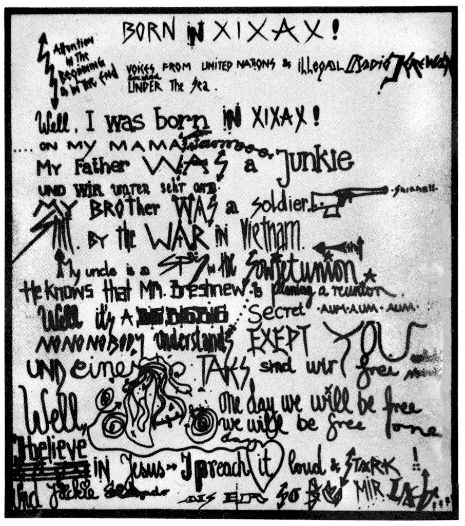 BORN IN XIXAX!
Attention in the Beginning & in the End
VOICES FROM UNITED NATIONS & illegal Radio Jerewan
UNDER The Sea.
Well, I was born IN XIXAX!
..... ON MY MAMA
My Father WAS a Junkie
UND WIR waren sehr arm.
MY BROTHER WAS a soldier.
. BY the WAR in Vietnam.
My uncle is a SPY in the Sowjetunion
He KNOWS that Mr. Breshnew is planing a reunion.
Well it's A Secret .AUM.AUM.AUM.
NO NO NOBODY understands EXEPT YOU
UND eines TAGS sind wir free
Well, One day we will be free
we will be free one
day
I believe
IN Jesus I preach it loud & STARK !!
Und Jackie